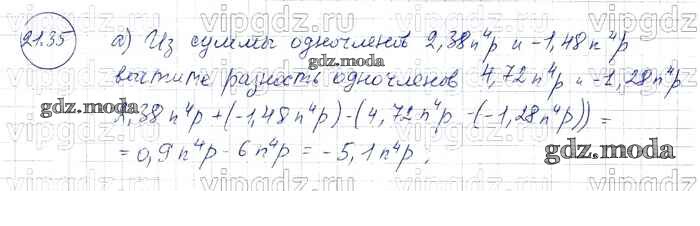 21.35
а) Из суммы одночленов 2,38n⁴p и -1,48n⁴p
вычтите разность одночленов 4,72n⁴p и -1,28n⁴p
2,38n⁴p+(-1,48n⁴p)-(4,72n⁴p-(-1,28n⁴p))=
=0,9n⁴p-6n⁴p=-5,1n⁴p,
gdz.moda
gdz.moda
vipgdz.ru vipgdz.ru vipgdz.ru
vipgdz.ru vipgdz.ru vipgdz.ru